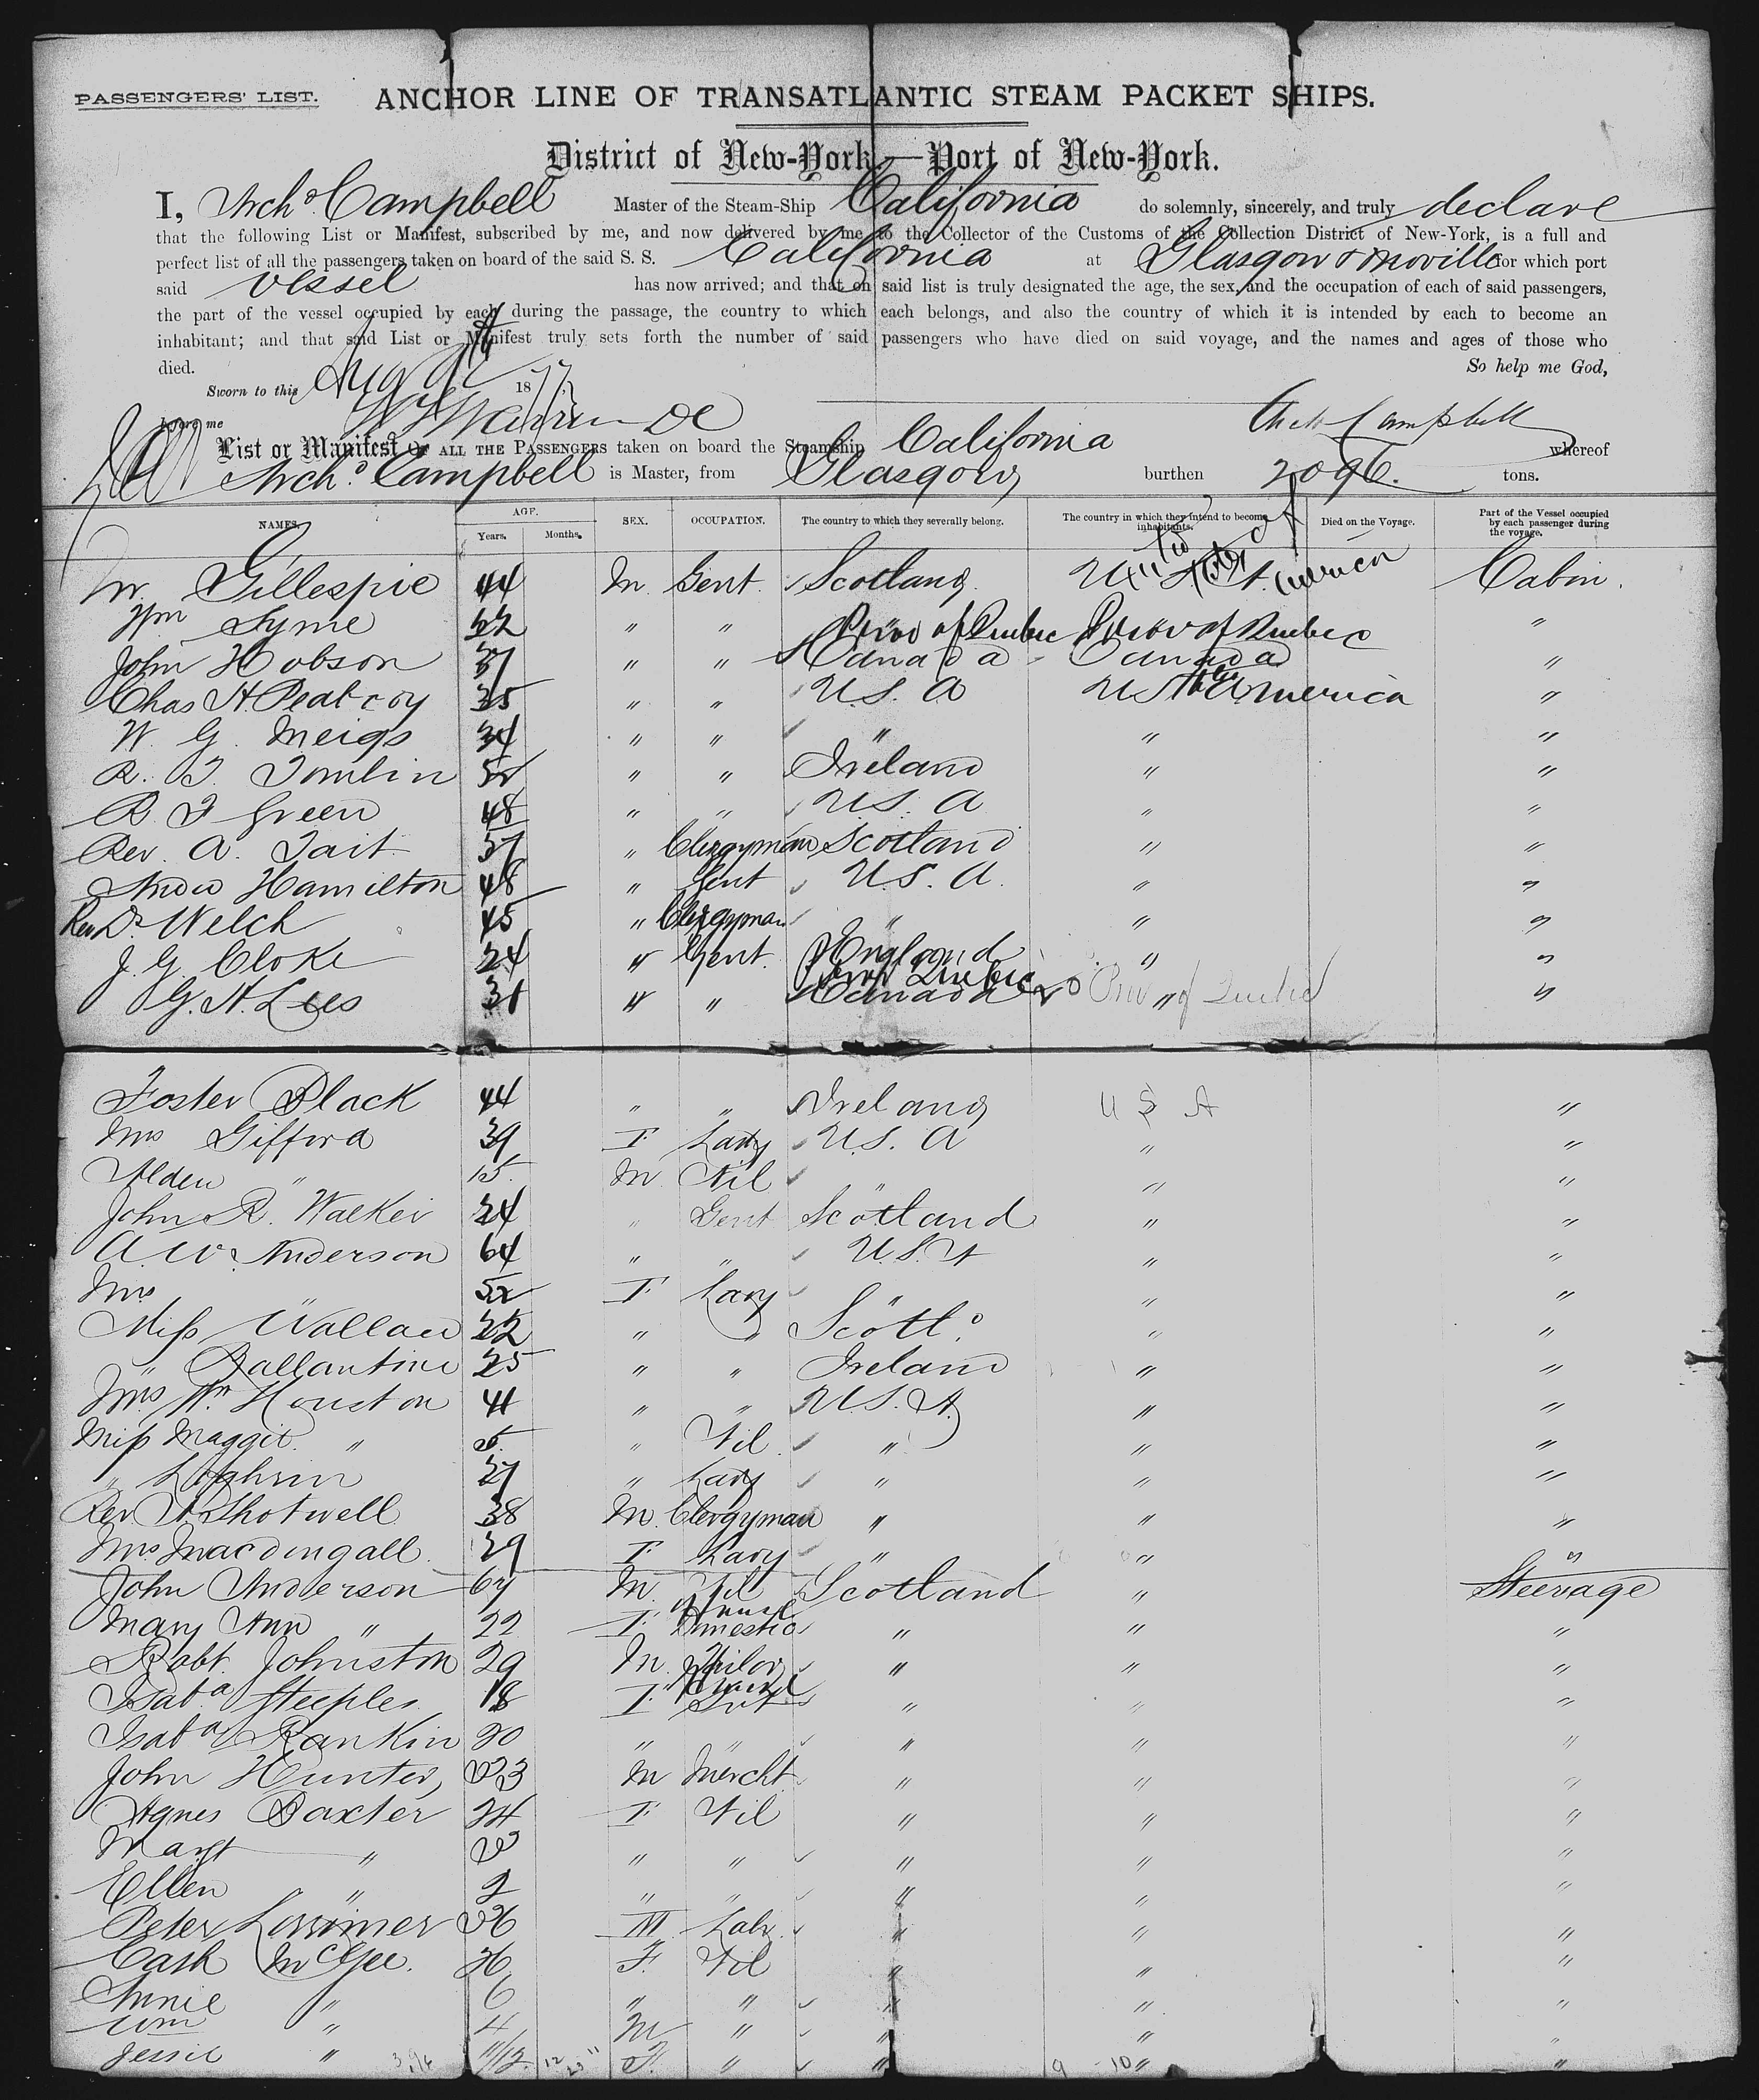 PASSENGERS' LIST.
ANCHOR LINE OF TRANSATLANTIC STEAM PACKET SHIPS.
District of New-York—Port of New-York.
I, Archd. Campbell Master of the Steam-Ship California do solemnly, sincerely, and truly declare
that the following List or Manifest, subscribed by me, and now delivered by me to the Collector of the Customs of the Collection District of New-York, is a full and
perfect list of all the passengers taken on board of the said S. S. California at Glasgow & Moville for which port
said vessel has now arrived; and that on said list is truly designated the age, the sex, and the occupation of each of said passengers,
the part of the vessel occupied by each during the passage, the country to which each belongs, and also the country of which it is intended by each to become an
inhabitant; and that said List or Manifest truly sets forth the number of said passengers who have died on said voyage, and the names and ages of those who
died. So help me God,
Sworn to this Aug 1877
before me
Archd Campbell
List or Manifest OF ALL THE PASSENGERS taken on board the Steamship California whereof
Archd. Campbell is Master, from Glasgow, burthen 2096. tons.
NAMES. AGE. Years. Months. SEX. OCCUPATION. The country to which they severally belong. The country in which they intend to become inhabitants. Died on the Voyage. Part of the Vessel occupied by each passenger during the voyage.
Gillespie 44 M. Gent. Scotland United States of America Cabin.
Wm Syme 52 " " " Prov of Quebec Prov of Quebec "
John Hobson 37 " " Canada Canada "
Chas H. 35 " " U.S. A U St America "
W. G. Meigs 34 " " " " "
R. T. Tomlin 52 " " Ireland " "
R. T Green 48 " " U.S. A " "
Rev. A. Tait 57 " Clergyman Scotland " "
Andw Hamilton 48 " Gent U.S. A. " "
Rev Dr Welch 45 " Clergyman " " "
J. G. Cloke 24 " Gent. England " "
G. H. Lees 31 " " Prov Quebec Canada " Prov of Quebec "
Foster Black 44 " " Ireland U S A "
Mrs Gifford 39 F Lady U.S. A " "
Alden " 15 M Nil " " "
John R. Walker 24 " Gent Scotland " "
A. W. Anderson 64 " " U.S. A " "
Mrs " 52 F Lady " " "
Miss Wallace 22 " " Scotld. " "
" Ballantine 25 " " Ireland " "
Mrs Wm. Houston 41 " " U.S. A. " "
Miss Maggie " 5 " Nil " " "
" 27 " Lady " " "
Rev. A. Shotwell 38 M. Clergyman " " "
Mrs Macdougall 29 F. Lady " " "
John Anderson 64 M. Nil Scotland " Steerage
Mary Ann " 22 F Domestic " " "
Robt. Johnston 29 M. " " "
Isaba Steeples 18 F Svt " " "
Isaba Rankin 20 " " " " "
John Hunter, 23 M Mercht " " "
Agnes Baxter 24 F Nil " " "
Margt " " " " " "
Ellen " 2 " " " " "
Peter Lorrimer 36 M Labr " " "
Cath McGee. 26 F. Nil " " "
Annie " 6 " " " " "
Wm " 4 M " " " "
Jessie " 11/12 F. " " " "